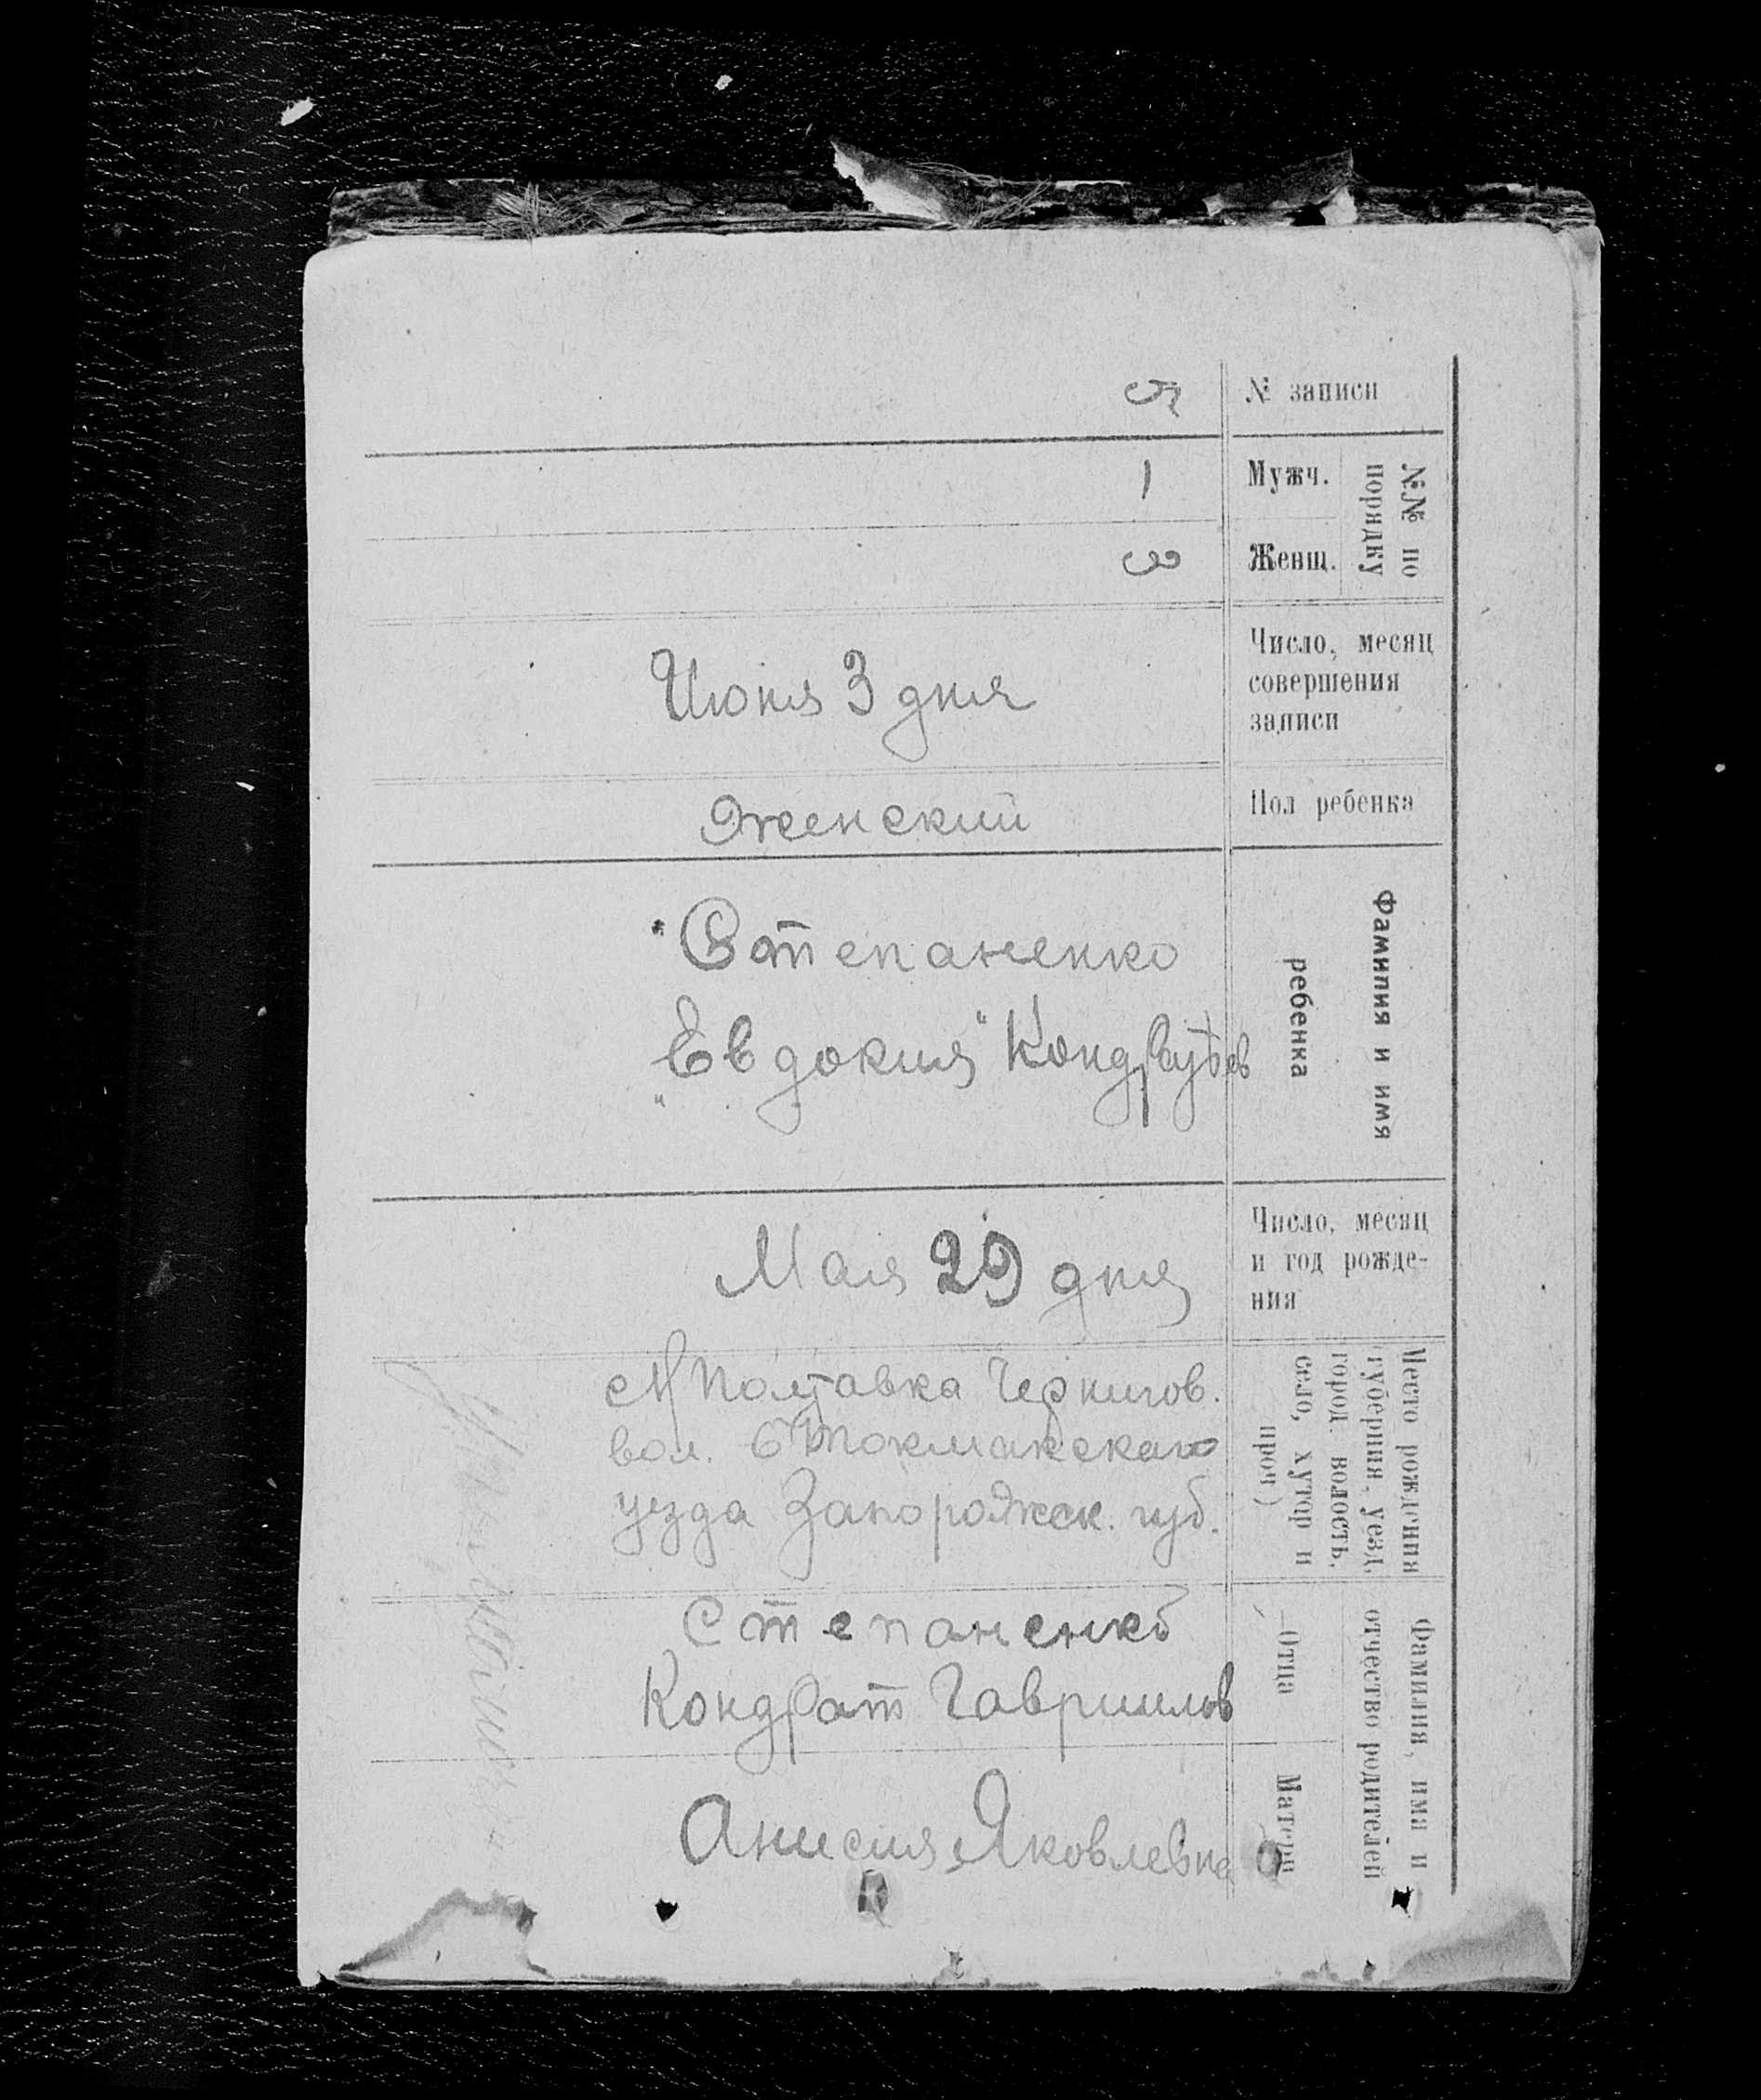 № записи
5
№№ по
порядку
Мужч.
1
Женщ.
3
Число, месяц
совершения
записи
Июня 3 дня
Пол ребенка
Женский
Фамилия и имя
ребенка
"Степаненко
"Евдокия"
Число, месяц
и год рожде-
ния
Мая 29 дня
Место рождения
(губерния, уезд,
город, волость,
село, хутор и
проч)
Полтавка Чернигов.
вол. Б Токмакскаго
уезда Запорожск. губ.
Фамилия, имя и
отчество родителей
Отца
Степаненко
Кондрат Гаврилов
Матери
Анисия Яковлевна